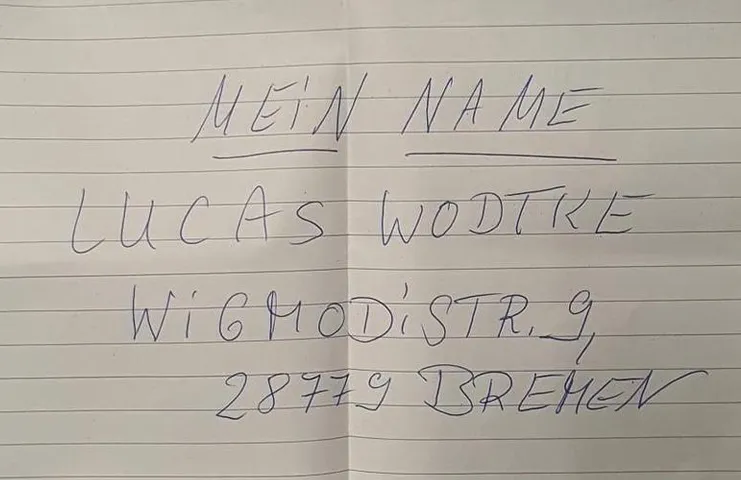 MEiN NAME
LUCAS WODTKE
WiGMODiSTR. 9,
28779 BREMEN